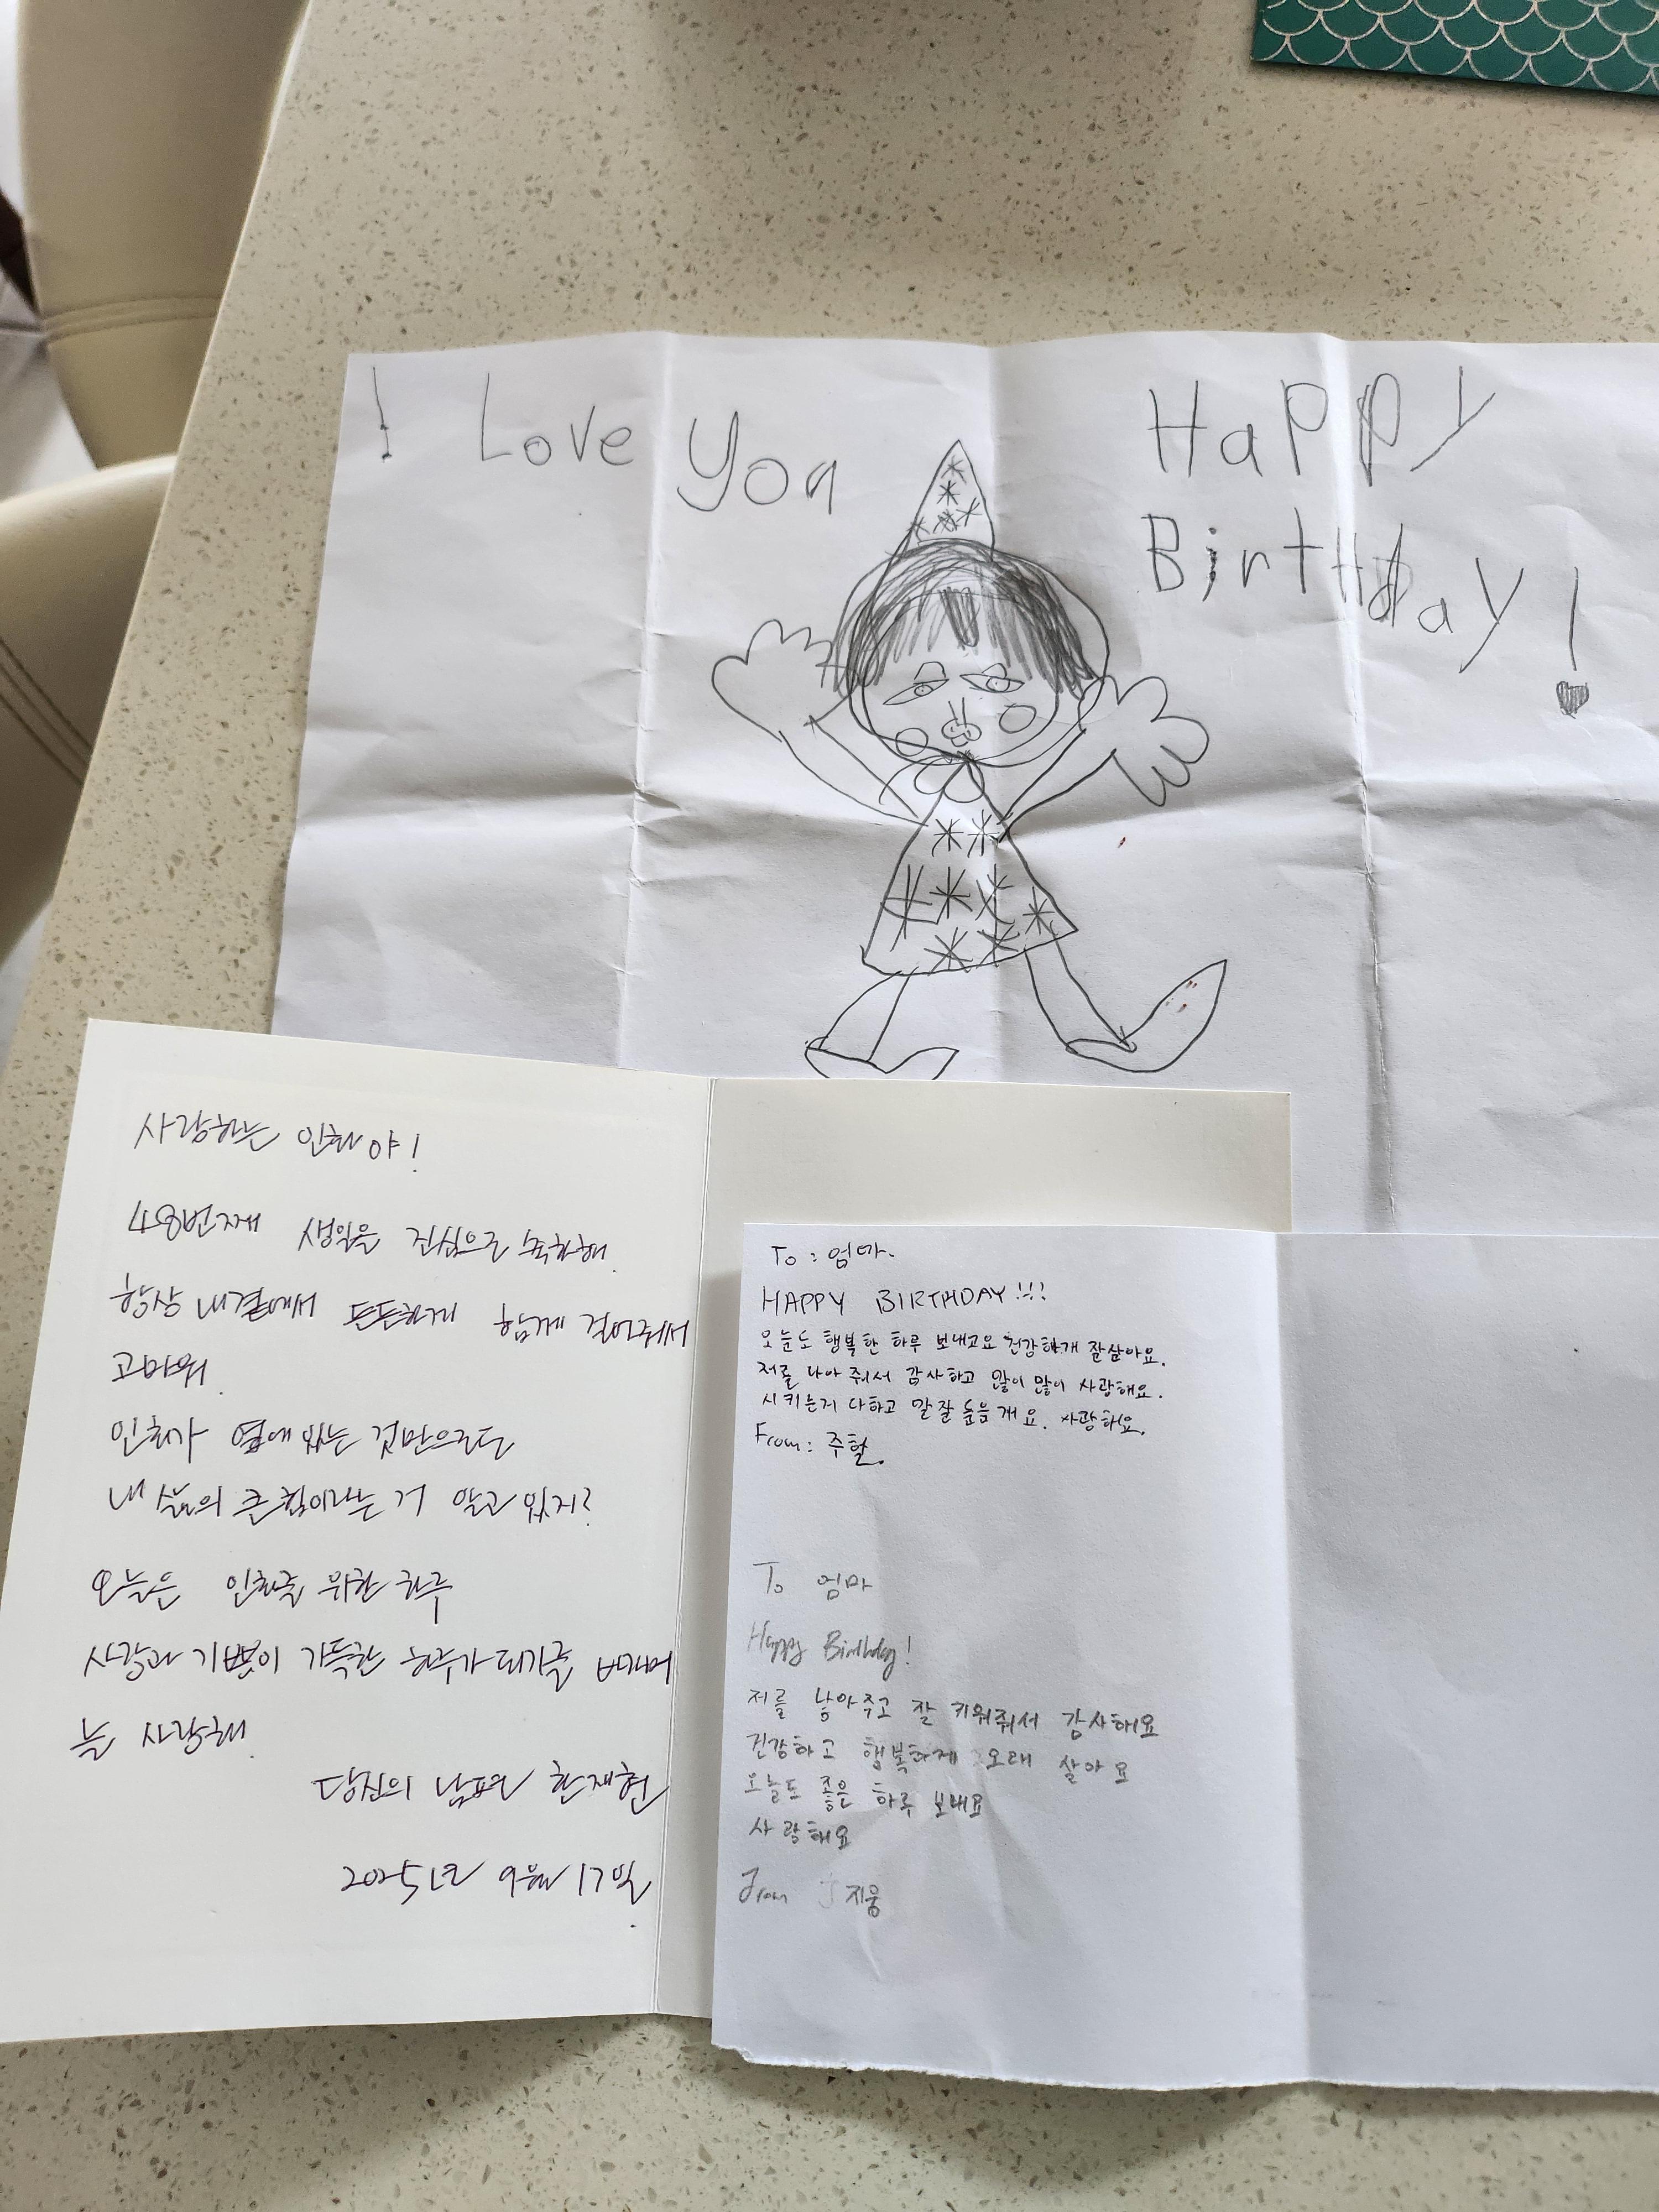 I Love You
Happy
Birthday!
사랑하는 인화야!
48번째 생일을 진심으로 축하해.
항상 내곁에서 든든하게 함께 걸어줘서
고마워.
인화가 옆에 있는 것만으로도
내 삶의 큰 힘이라는 거 알고 있지?
오늘은 인화를 위한 하루
사랑과 기쁨이 가득한 하루가 되기를 바래며
늘 사랑해.
당신의 남편 한재현
2025년 9월 17일.
To : 엄마.
HAPPY BIRTHDAY!!!
오늘도 행복한 하루 보내고요 건강하개 잘살아요.
저를 나아 줘서 감사하고 많이 많이 사랑해요.
시키는거 다하고 말잘 들을게요. 사랑해요.
From: 주혈.
To 엄마
Happy Birthday!
저를 낳아주고 잘 키워줘서 감사해요
건강하고 행복하게 오래 살아요
오늘도 좋은 하루 보내요
사랑해요
From 지웅